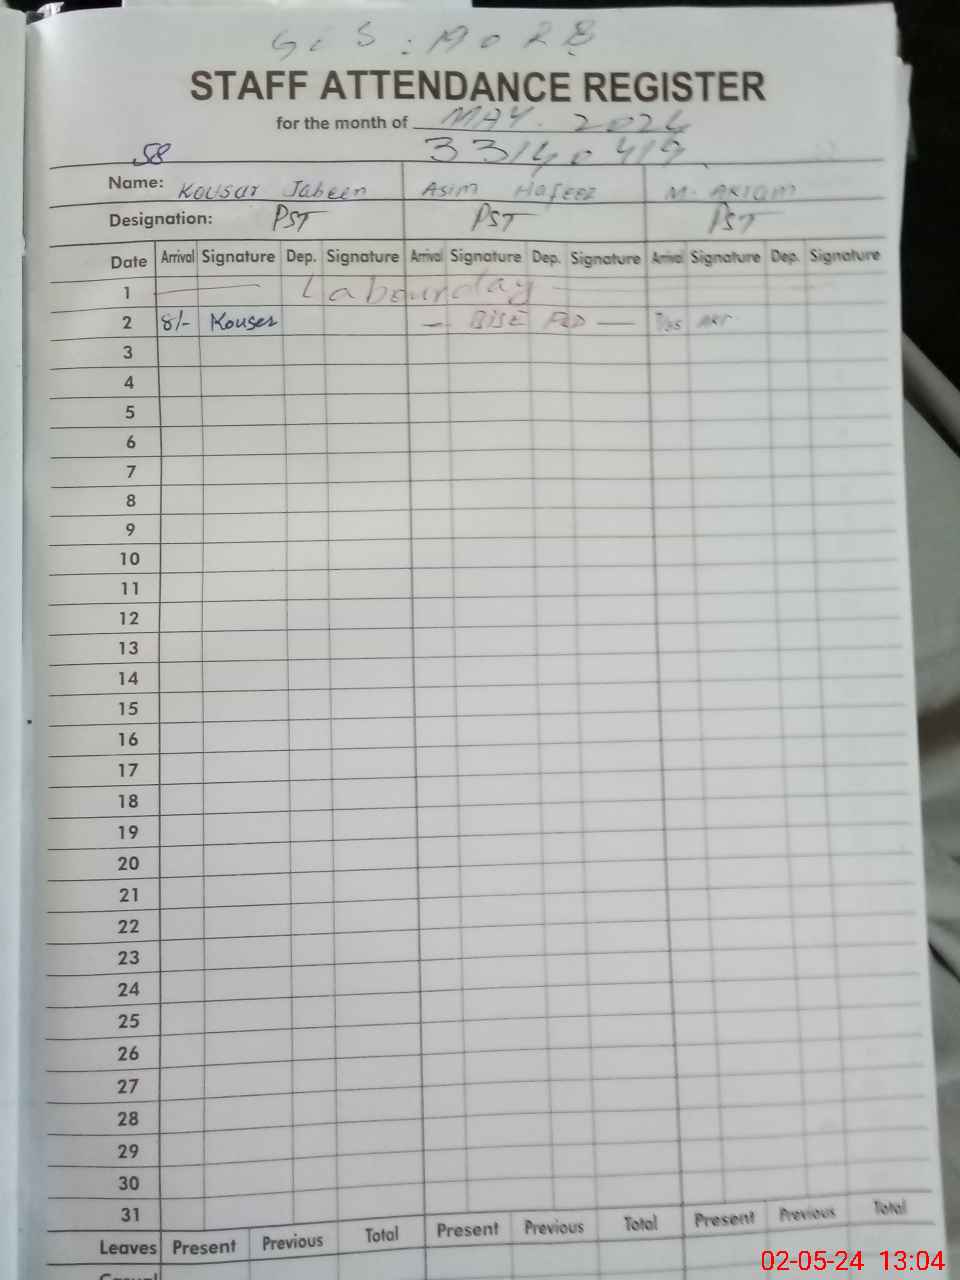 STAFF ATTENDANCE REGISTER
for the month of MAY. 2024
58 33140419
Name: Kousar Jabeen Asim Hafeez M. AKRam
Designation: PST PST PST
Date Arrival Signature Dep. Signature Arrival Signature Dep. Signature Arrival Signature Dep. Signature
1 Labour day
2 8/- Kouser — BISE FSD —
3
4
5
6
7
8
9
10
11
12
13
14
15
16
17
18
19
20
21
22
23
24
25
26
27
28
29
30
31
Leaves Present Previous Total Present Previous Total Present Previous Total
Casual
02-05-24 13:04